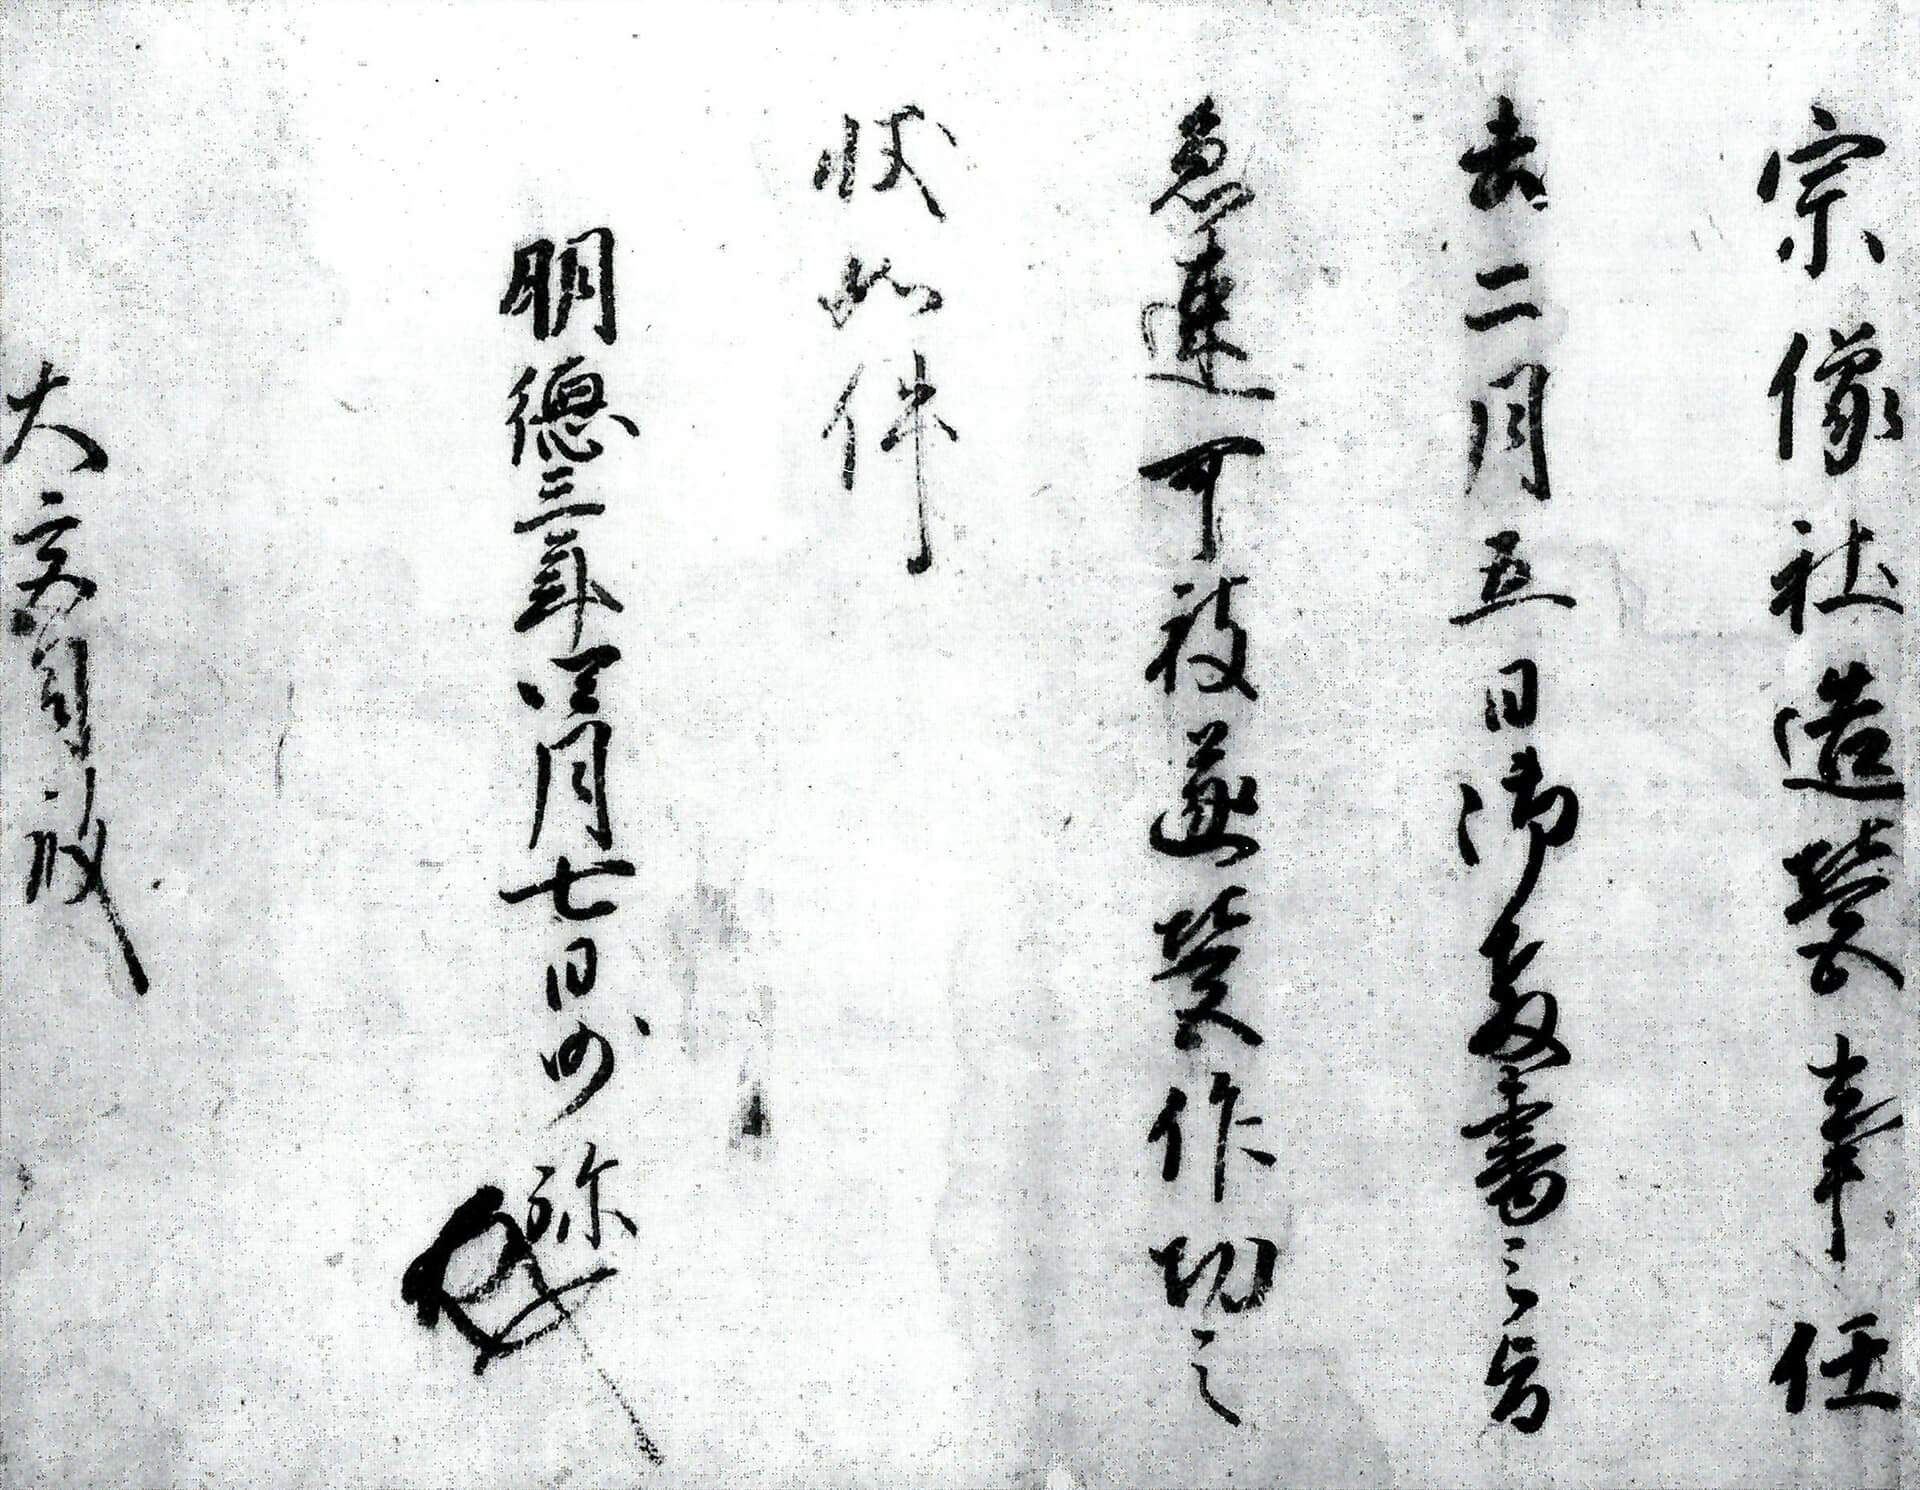 宗像社造營事任
去二月五日御教書之旨
急速可被遂營作功之
状如件
明德三年四月七日沙弥
大宮司殿